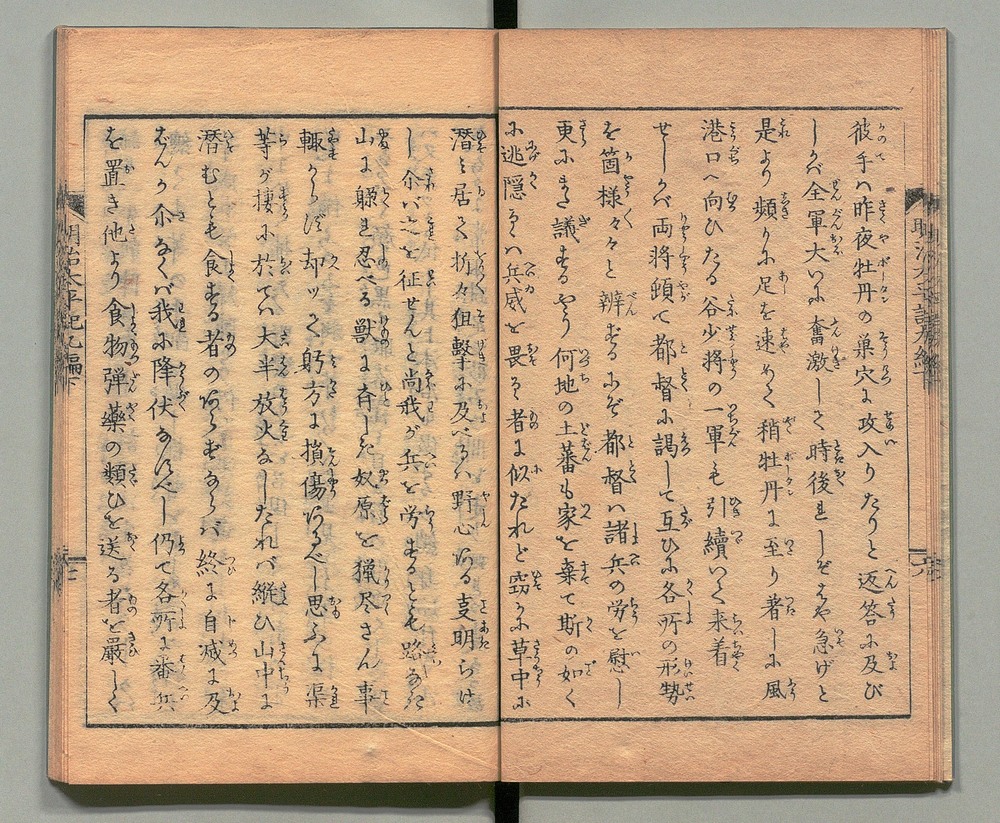 彼手ハ昨夜牡丹の巣穴に攻入りたりと返答に及び
しかバ全軍大いに奮激して時後れしをはや急げと
是より頻りに足を速めて稍牡丹に至り着しに風
港口へ向ひたる谷少将の一軍も引續いて来着
せしかバ両将頓て都督に謁して互ひに各所の形勢
を箇様々々と辨ずるにぞ都督ハ諸兵の労を慰し
更にまた議するやう何地の土蕃も家を棄て斯の如く
に逃隠るハ兵威を畏る者に似たれど窃かに草中に
潜み居て折々狙撃に及べるハ野心ある事明らけ
し尒バ之を征せんと尚我が兵を労するとも路なき
山に躲れ忍べる獣に斉しき奴原を猟尽さん事
輙からず却ッて躬方に損傷あるべし思ふに渠
等が棲に於てハ大半放火なしたれバ縦ひ山中に
潜むとも食する者のあらずならバ終に自滅に及
ばんか尒なくバ我に降伏なすべし仍て各所に番兵
を置き他より食物弾薬の類ひを送る者を厳しく
明治太平記九編下